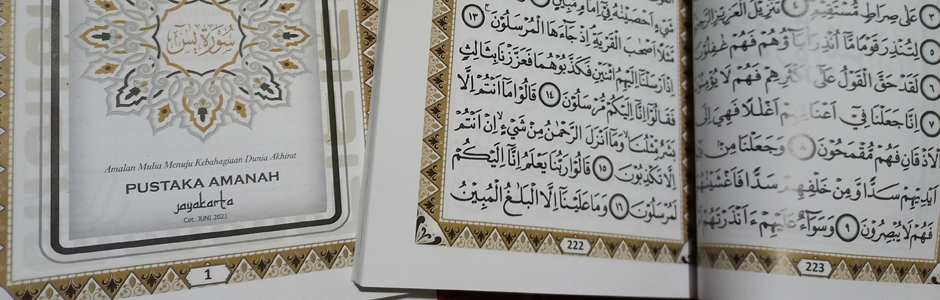 سورة يس
Amalan Mulia Menuju Kebahagiaan Dunia Akhirat
PUSTAKA AMANAH
jayakarta
Cet. JUNI 2021
1
شَيْءٍ اَحْصَيْنٰهُ فِيْٓ اِمَامٍ مُّبِيْنٍ
۝١٣
مَّثَلًا اَصْحٰبَ الْقَرْيَةِ اِذْ جَآءَهَا الْمُرْسَلُوْنَ
اِذْ اَرْسَلْنَآ اِلَيْهِمُ اثْنَيْنِ فَكَذَّبُوْهُمَا فَعَزَّزْنَا بِثَالِثٍ
فَقَالُوْٓا اِنَّآ اِلَيْكُمْ مُّرْسَلُوْنَ ۝١٤ قَالُوْا مَآ اَنْتُمْ اِلَّا
بَشَرٌ مِّثْلُنَا وَمَآ اَنْزَلَ الرَّحْمٰنُ مِنْ شَيْءٍ اِنْ اَنْتُمْ
اِلَّا تَكْذِبُوْنَ ۝١٥ قَالُوْا رَبُّنَا يَعْلَمُ اِنَّآ اِلَيْكُمْ
لَمُرْسَلُوْنَ ۝١٦ وَمَا عَلَيْنَآ اِلَّا الْبَلٰغُ الْمُبِيْنُ
222
۝٣ عَلٰى صِرَاطٍ مُّسْتَقِيْمٍ ۝٤ تَنْزِيْلَ الْعَزِيْزِ
۝٥ لِتُنْذِرَ قَوْمًا مَّآ اُنْذِرَ اٰبَآؤُهُمْ فَهُمْ غٰفِلُوْنَ
۝٦ لَقَدْ حَقَّ الْقَوْلُ عَلٰٓى اَكْثَرِهِمْ فَهُمْ لَا
۝٧ اِنَّا جَعَلْنَا فِيْٓ اَعْنَاقِهِمْ اَغْلٰلًا فَهِيَ اِلَى
الْاَذْقَانِ فَهُمْ مُّقْمَحُوْنَ ۝٨ وَجَعَلْنَا مِنْ
اَيْدِيْهِمْ سَدًّا وَّمِنْ خَلْفِهِمْ سَدًّا
فَهُمْ لَا يُبْصِرُوْنَ ۝٩ وَسَوَآءٌ عَلَيْهِمْ ءَاَنْذَرْتَهُمْ
223